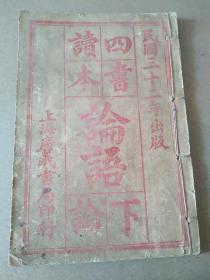 民國三十二年出版
四書
讀本
論語
下論
上海書局印行